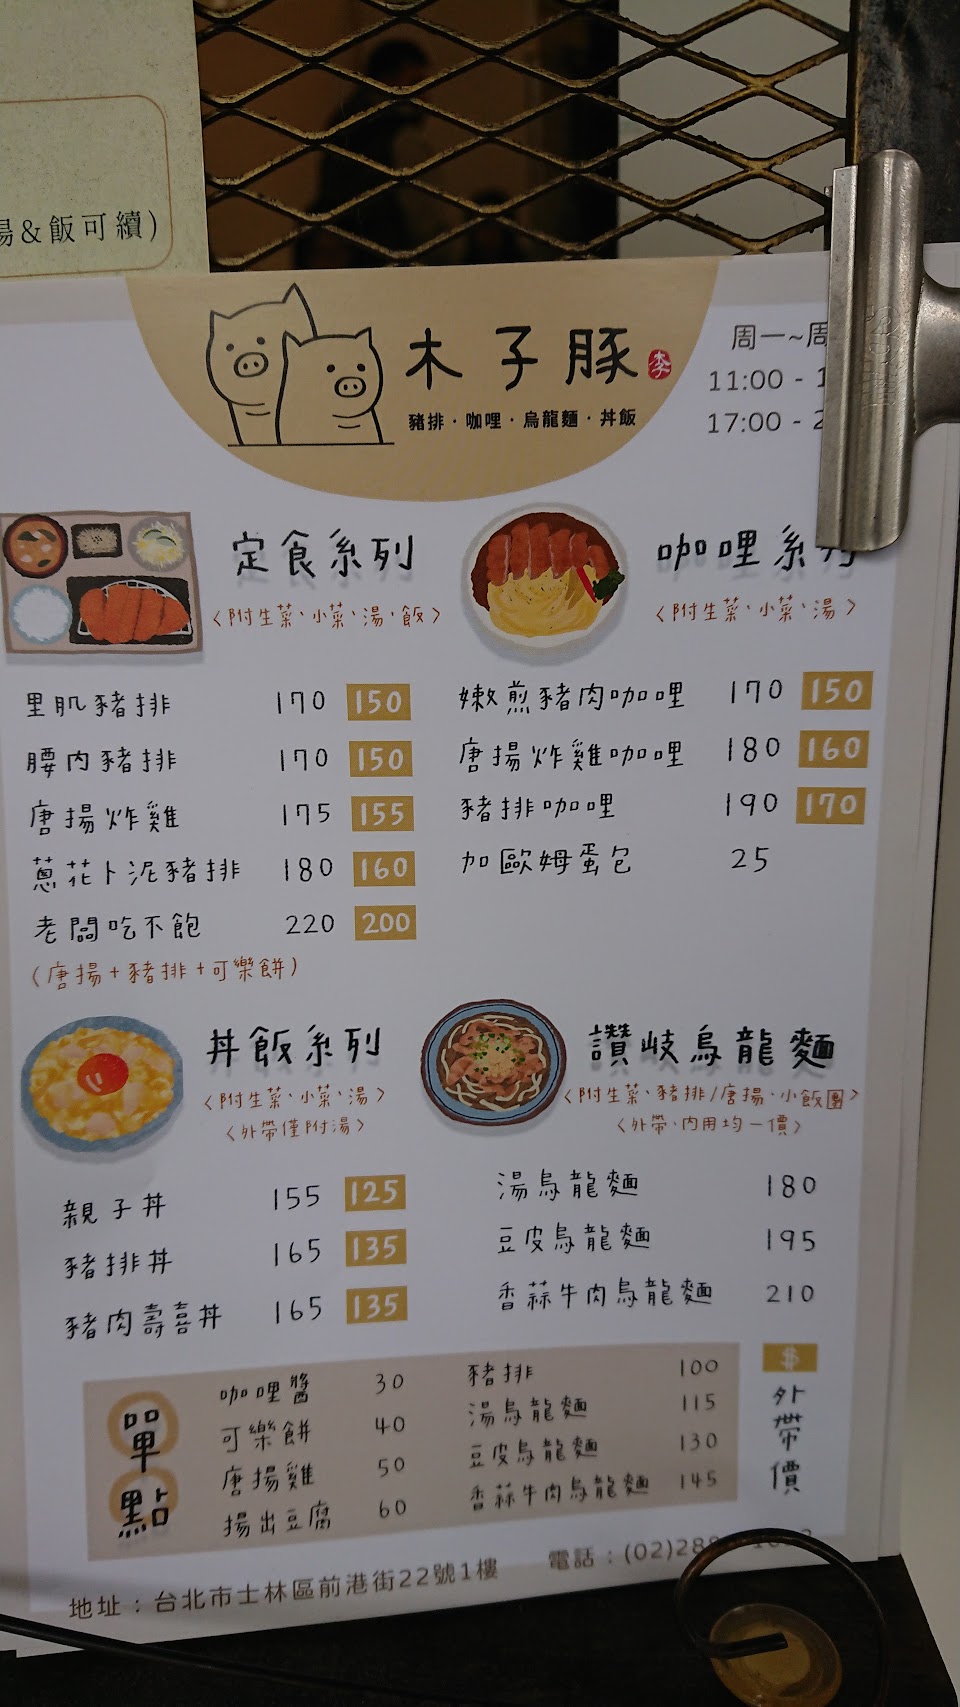 湯&飯可續)
木子豚
李
豬排·咖哩·烏龍麵·丼飯
周一~周
11:00 - 1
17:00 - 2
定食系列
〈附生菜、小菜、湯、飯〉
里肌豬排 170 150
腰內豬排 170 150
唐揚炸雞 175 155
蔥花卜泥豬排 180 160
老闆吃不飽 220 200
(唐揚+豬排+可樂餅)
咖哩系列
〈附生菜、小菜、湯〉
嫩煎豬肉咖哩 170 150
唐揚炸雞咖哩 180 160
豬排咖哩 190 170
加歐姆蛋包 25
丼飯系列
〈附生菜、小菜、湯〉
〈外帶僅附湯〉
親子丼 155 125
豬排丼 165 135
豬肉壽喜丼 165 135
讚岐烏龍麵
〈附生菜、豬排/唐揚、小飯團〉
〈外帶、內用均一價〉
湯烏龍麵 180
豆皮烏龍麵 195
香蒜牛肉烏龍麵 210
單點
咖哩醬 30
可樂餅 40
唐揚雞 50
揚出豆腐 60
豬排 100
湯烏龍麵 115
豆皮烏龍麵 130
香蒜牛肉烏龍麵 145
$
外帶價
地址:台北市士林區前港街22號1樓
電話:(02)288